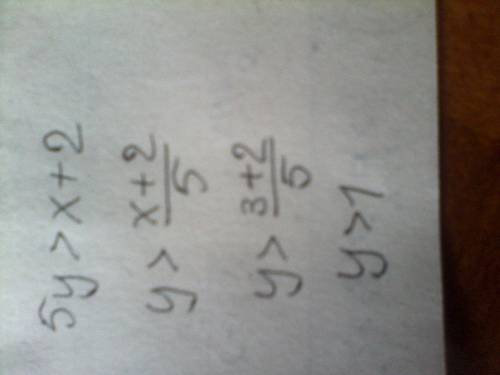 5y > x + 2
y > x + 2 / 5
y > 3 + 2 / 5
y > 1